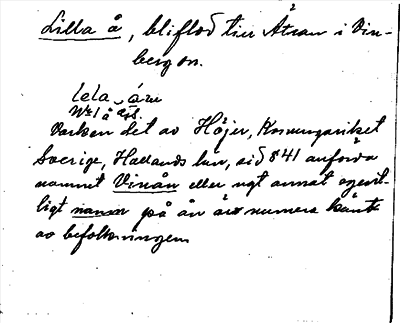 Lilla å, biflod till Ätran i Vin-
berg sn.
lela ‿ á:n
Varken det av Höjer, Konungariket
Sverige, Hallands län, sid 841 anförda
namnet Vinån eller ngt annat egent-
ligt namn på ån är numera känt
av befolkningen